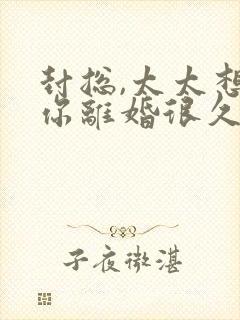 封总,太太想
你離婚很久
子夜微湛